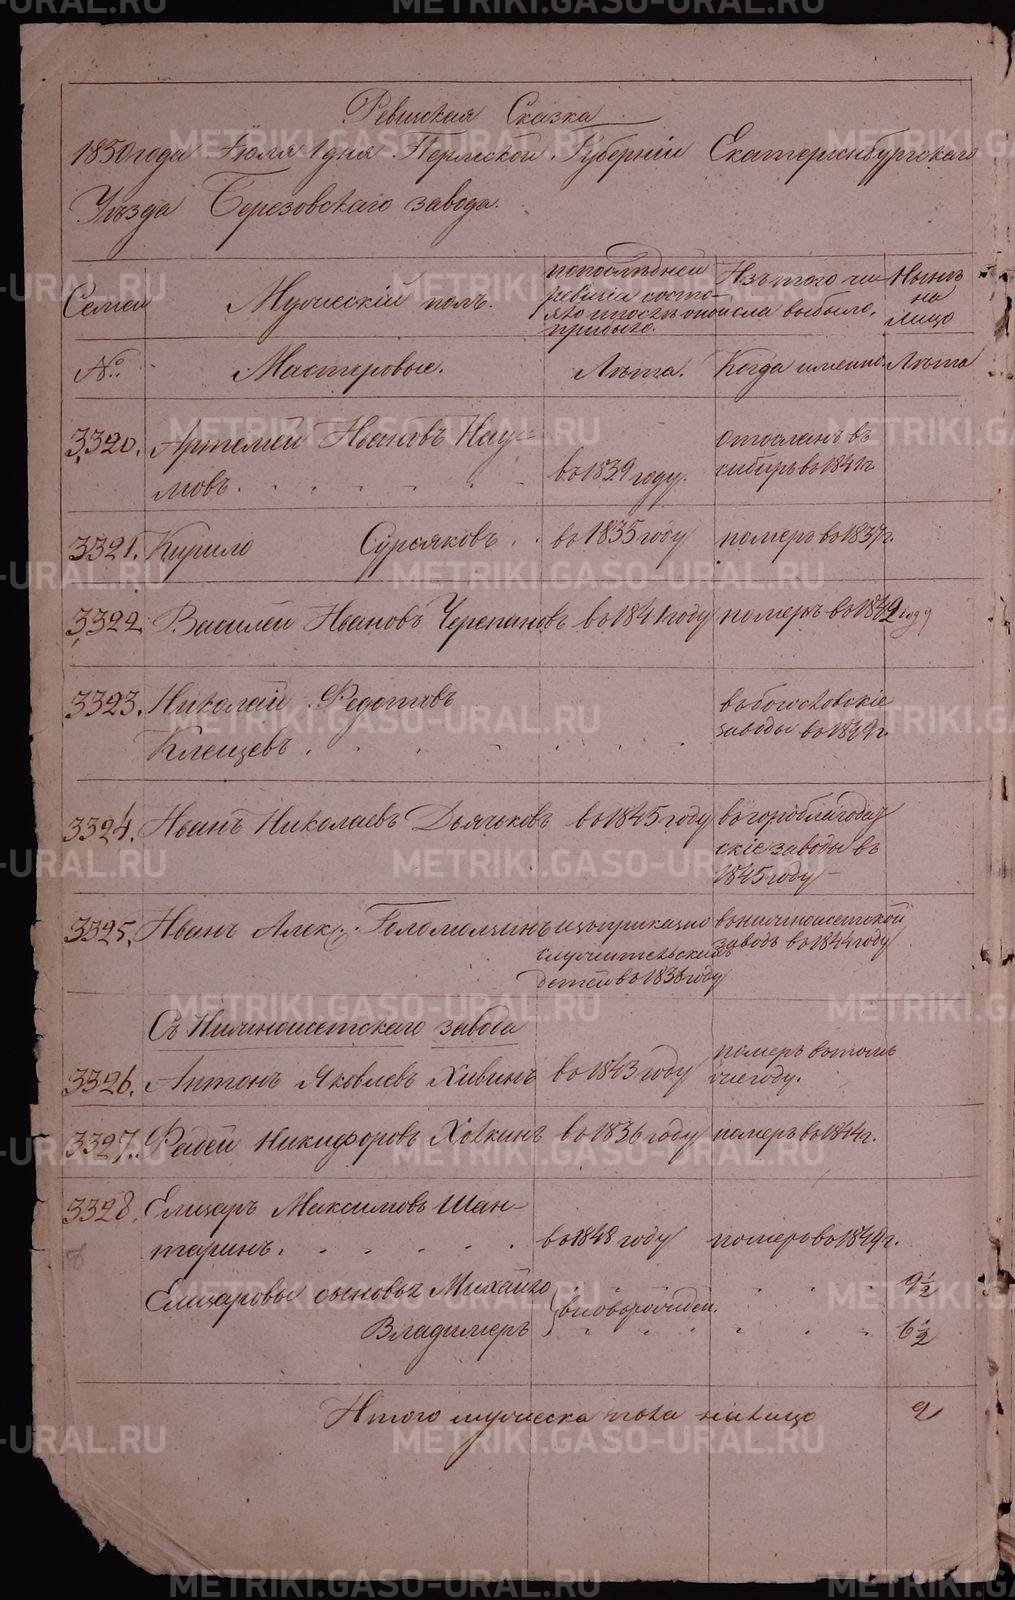 Ревизская Сказка
1850 года Іюля 1 дня Пермской Губерніи Екатеринбургскаго
Уѣзда Березовскаго завода.
Семьи
Мужескій полъ.
по послѣдней ревизіи состояло и послѣ оной прибыло.
Изъ того числа выбыло.
Нынѣ на лицо
№.
Мастеровые.
Лѣта.
Когда именно.
Лѣта
3320. Артемей Ивановъ Нау-
мовъ. в 1839 году. отосланъ въ
сибирь во 1841 г.
3321. Кирило Сурсяковъ. во 1835 году померъ во 1837 г.
3322 Василей Ивановъ Черепановъ во 1841 году померъ во 1842 году
3323. Николай Федотовъ
Клещевъ. в богословскіе
заводы во 1849 г.
3324. Иванъ Николаевъ Дьячковъ во 1845 году в гороблагодат
скіе заводы въ
1845 году
3325. Иванъ Алек. Голомолзинъ
служительскихъ
детей во 1836 году
в нижнеисетской
заводъ во 1844 году
Съ Нижнеисетскаго завода
3326. Антонъ Яковлевъ Хивинъ во 1843 году померъ в томъ
же году.
3327. Фадей Никифоровъ Ховкинъ во 1836 году померъ во 1844 г.
3328. Елизаръ Максимовъ Шан-
таринъ. во 1848 году померъ во 1849 г.
Елизаровы сыновья Михайло 9½
Владимеръ вновьрожден. 6½
Итого мужеска пола налицо 2
METRIKI.GASO-URAL.RU